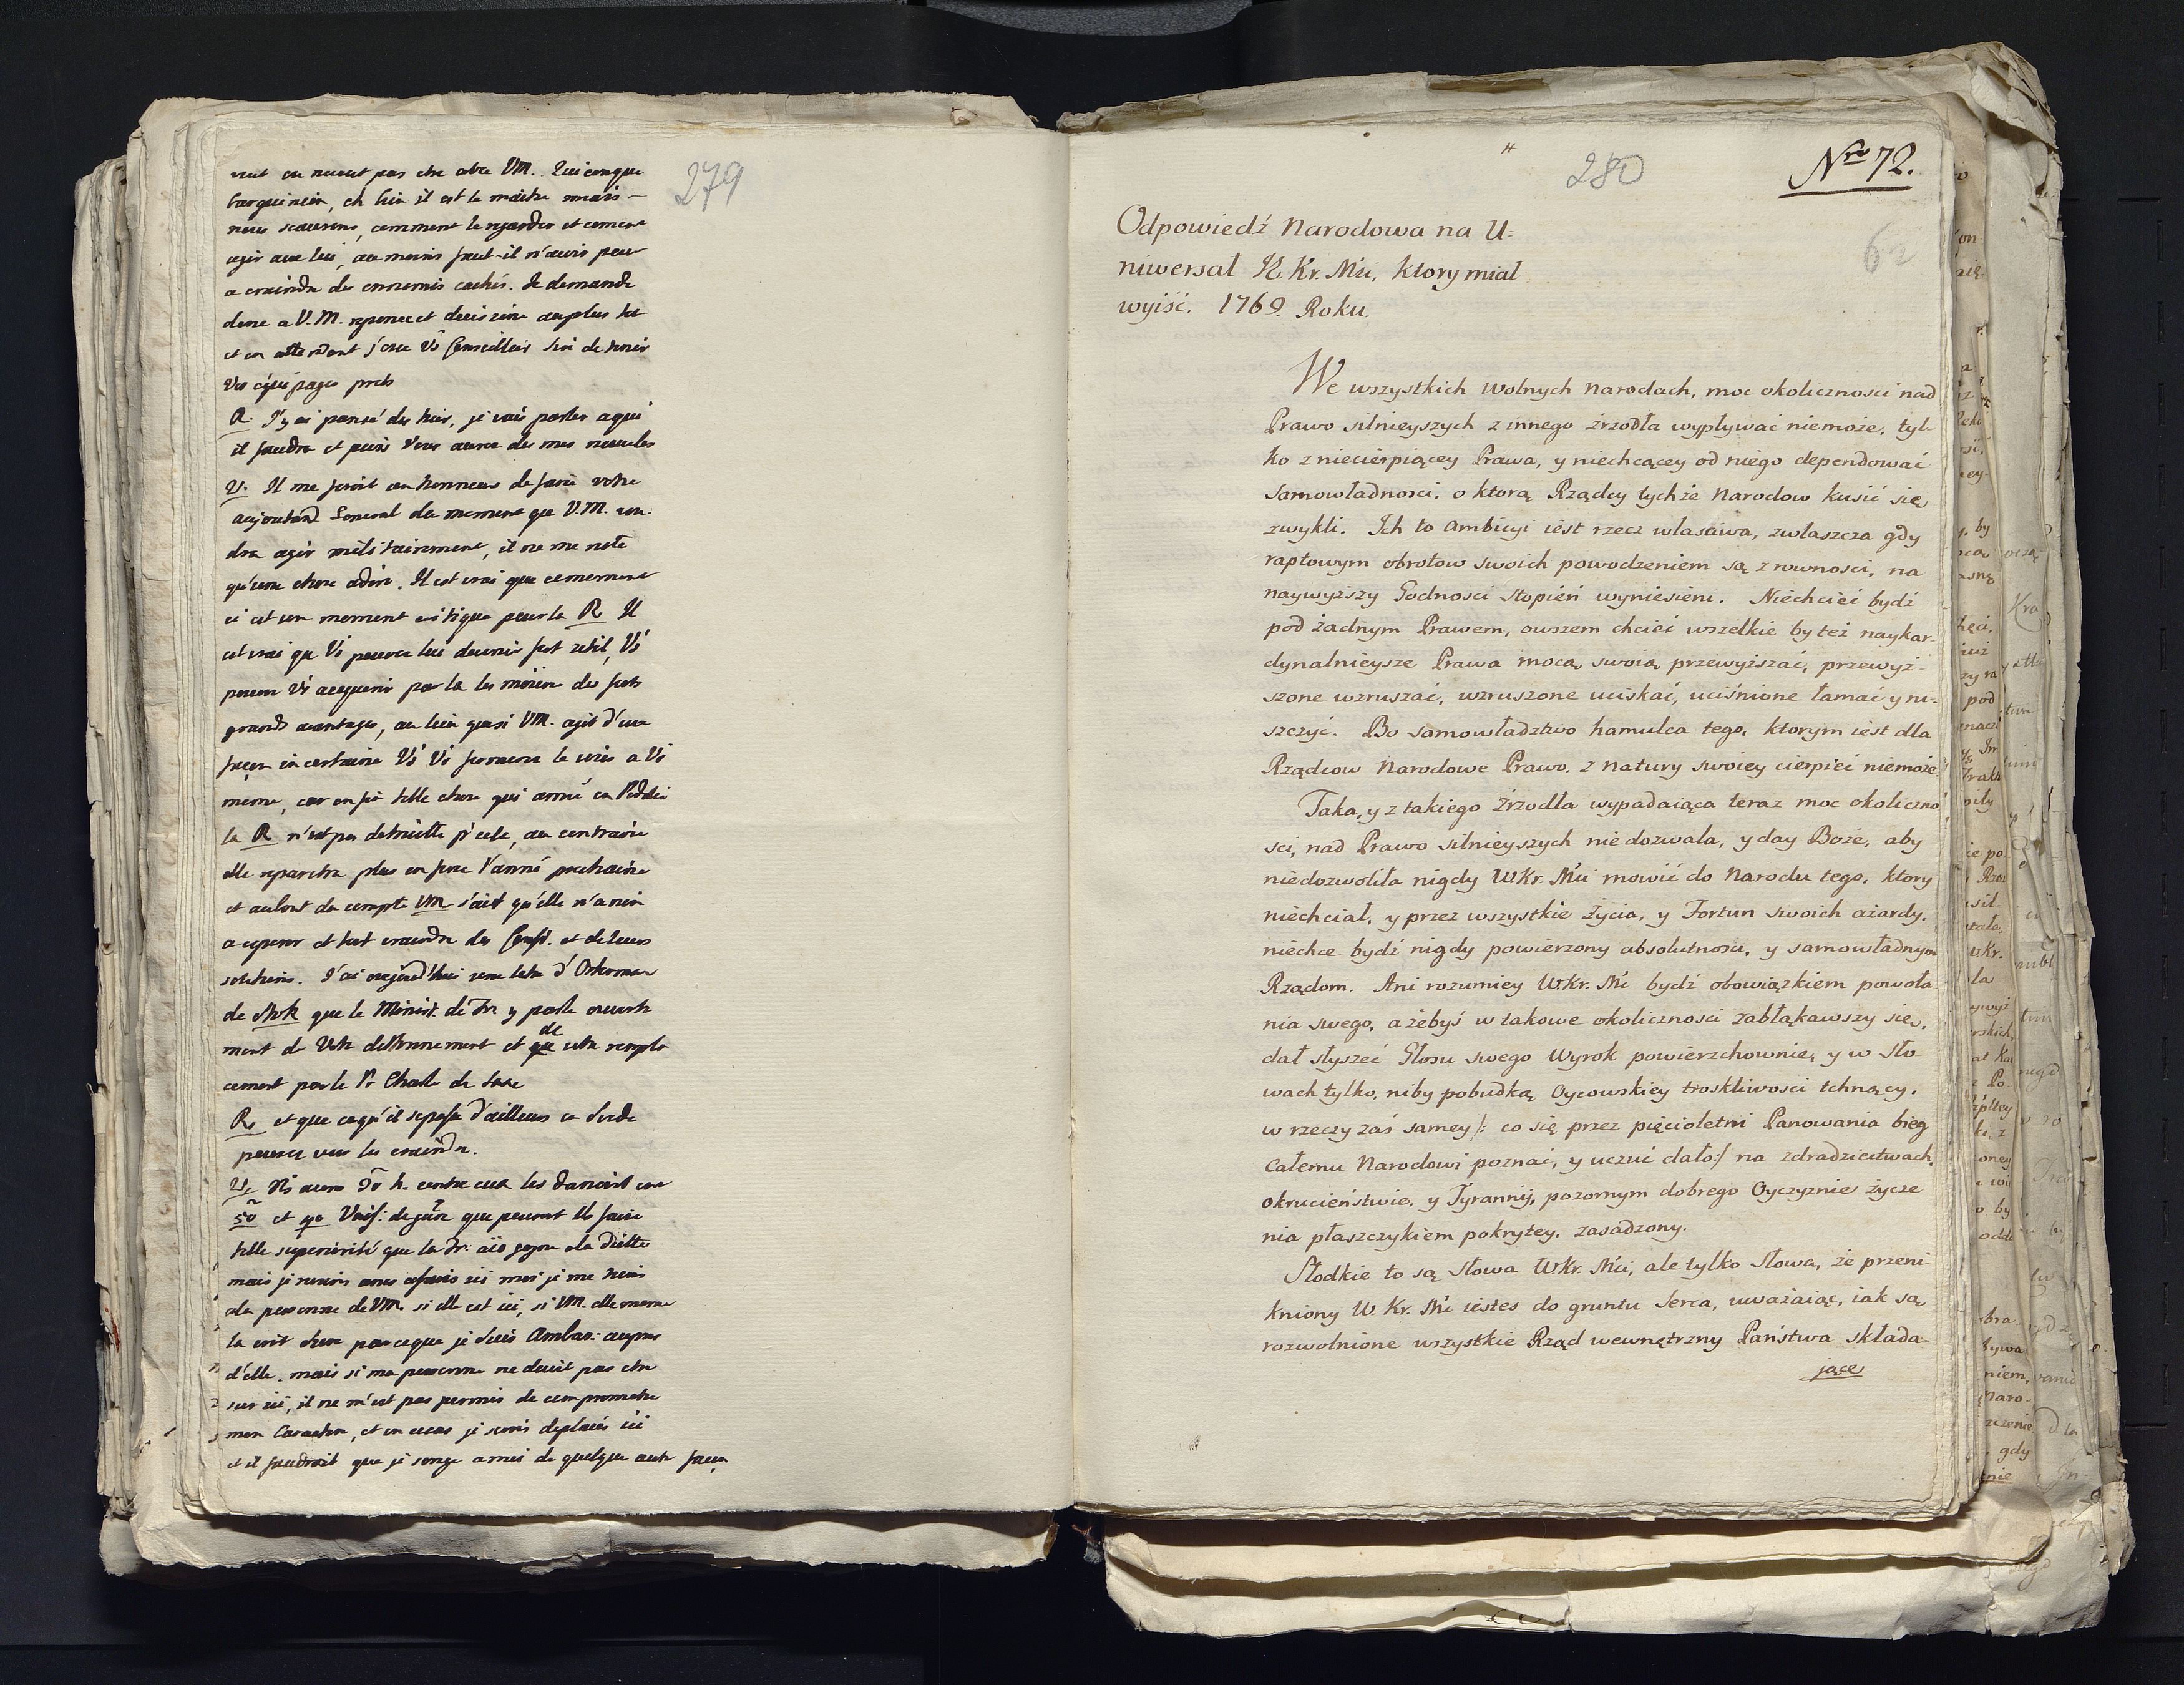 279
veut on ne veut pas etre abra VM. Quiconque
nous scaurons, comment le regarder et comme
agir avec lui, au moins faut-il n'avoir peur
a craindre des ennemis cachés. Je demande
donc a V.M. reponse et decision au plus tot
et en attendant j'ose Vs Conseiller Sire de tenir
Vos équipages prets
R. J'y ai pensé des hier, je vais parler a qui
il faudra et puis Vous aurez de mes nouvelles
V. Il me feroit un honneur de faire votre
aujourd General du moment que V.M. vou-
dra agir militairement, il ne me reste
qu'une chose a dire. Il est vrai que ce moment
ci est un moment critique pour la R Il
est vrai que Vs pouvez lui devenir fort util, Vs
pouvez Vs acquerir par la les moien des forts
grands avantages, au lieu que si VM. agit d'une
façon incertaine Vs Vs fermerez la voie a Vs
meme, car en fin telle chose qui arrive en Podolie
la R n'est pas detruitte p'cela, au contraire
elle reparoitra plus en force l'année prochaine
et au bout du compte VM sait qu'elle n'a rien
a esperer et tout craindre des Conf. et de leurs
soutiens. J'ai aujourd'hui une lettre d'Osterman
de Stok que le Minist. de Fr y parle ouverte
ment de Votre detronement et de votre rempla
cement par le Pr Charle de Saxe
R. et que ce qu'il se passe d'ailleurs en Suede
pouvez vous les craindre.
V. Ns avons
50 et Vaiss: de guere que peuvent Ils faire
telle superiorité que la Fr: aïe gagné a la Diette
mais je reviens a mes afaires ici moi je me tiens
a la personne de VM. si elle est ici, si VM. elle meme
la croit sure parceque je suis Ambas: aupres
d'elle. mais si ma personne ne devoit pas etre
sur ici, il ne m'est pas permis de compromettre
mon Caractere, et en ce cas je serois deplacés ici
et il faudroit que je songe a moi de quelque autre façon
280
Nro 72.
62
Odpowiedź Narodowa na U=
niwersał J. Kr. Mći, ktory miał
wyiść. 1769. Roku.
We wszystkich wolnych Narodach, moc okolicznosci nad
Prawo silnieyszych z innego źrzodła wypływać niemoże, tyl
ko z niecierpiącey Prawa, y niechcącey od niego dependować
samowładnosci, o ktorą Rządcy tychże Narodow kusić się
zwykli. Ich to ambicyi iest rzecz własawa, zwłaszcza gdy
raptowym obrotow swoich powodzeniem są z rownosci, na
naywyższy Godnosci stopień wyniesieni. Niechcieć bydź
pod żadnym Prawem, owszem chcieć wszelkie by też naykar-
dynalnieysze Prawa mocą swoią przewyższać, przewyż-
szone wzruszać, wzruszone uciskać, uciśnione łamać y ni-
szczyć. Bo samowładztwo hamulca tego, ktorym iest dla
Rządcow Narodowe Prawo, z natury swoiey cierpieć niemoże.
Taka, y z takiego źrzodła wypadaiąca teraz moc okoliczno
sci, nad Prawo silnieyszych niedozwala, y day Boże, aby
niedozwoliła nigdy WKr. Mći mowić do Narodu tego, ktory
niechciał, y przez wszystkie życia, y Fortun swoich ażardy,
niechce bydź nigdy powierzony absolutnosci, y samowładnym
Rządom. Ani rozumiey W.Kr. Mć bydź obowiązkiem powoła
nia swego, ażebyś w takowe okolicznosci zabłąkawszy się,
dał słyszeć Głosu swego Wyrok powierzchownie, y w sło
wach tylko, niby pobudką Oycowskiey troskliwosci tchnący,
w rzeczy zaś samey /: co się przez pięcioletni Panowania bieg
całemu Narodowi poznać, y uczuć dało:/ na zdradziectwach,
okrucieństwie, y Tyrannij, pozornym dobrego Oyczyznie życze
nia płaszczykiem pokrytey, zasadzony.
Słodkie to są słowa WKr. Mći, ale tylko słowa, że przeni
kniony W Kr. Mć iestes do gruntu serca, uważaiąc, iak są
rozwolnione wszystkie Rząd wewnętrzny Państwa składa-
jące